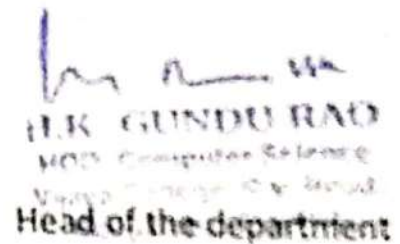 H.K GUNDU RAO
HOD Computer Science
College
Head of the department